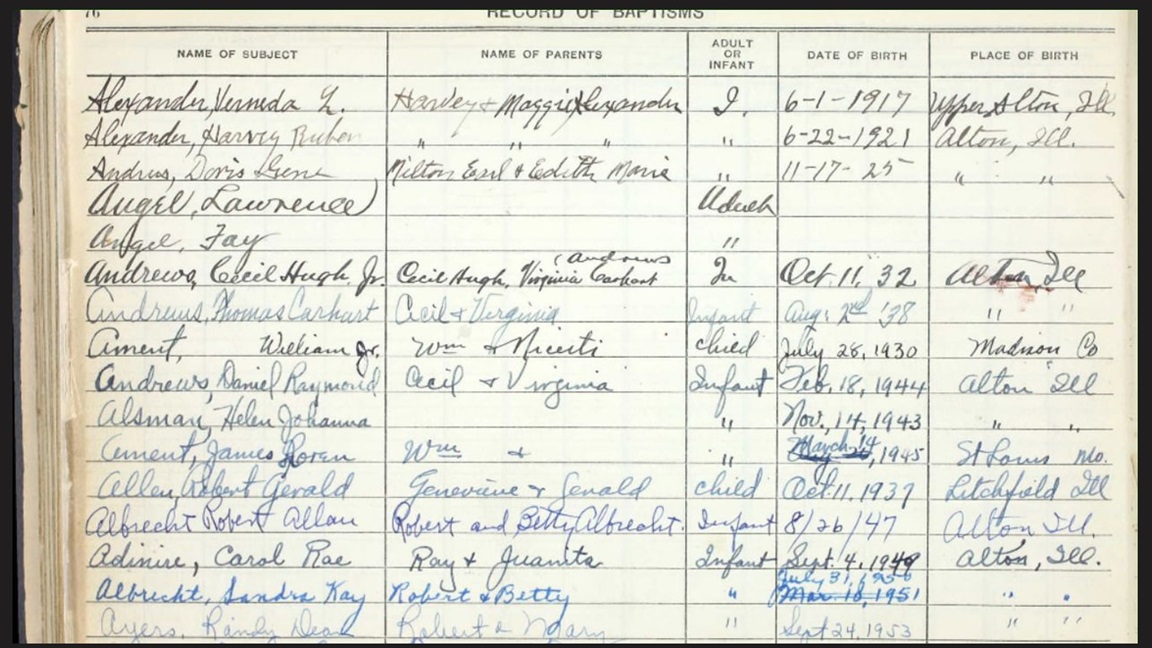 76 RECORD OF BAPTISMS
NAME OF SUBJECT NAME OF PARENTS ADULT OR INFANT DATE OF BIRTH PLACE OF BIRTH
Alexander, Verneda L. Harvey & Maggie Alexander I. 6-1-1917 Upper Alton, Ill.
Alexander, Harvey Ruben " " " " 6-22-1921 Alton, Ill.
Andrus, Doris Gene Milton Earl & Edith Marie " 11-17-25 " "
Angel, Lawrence Adult
Angel, Fay "
(Andrews
Andrews, Cecil Hugh Jr. Cecil Hugh, Virginia Carhart In Oct. 11, '32 Alton, Ill
Andrews, Thomas Carhart Cecil & Virginia Infant Aug. 2nd '38 " "
Ament, William Jr. Wm & child July 28, 1930 Madison Co
Andrews, Daniel Raymond Cecil & Virginia Infant Feb. 18, 1944 Alton Ill
Alsman, Helen Johanna " Nov. 14, 1943 " "
Ament, James Loran Wm & " March 14, 1945 St Louis Mo.
Allen, Robert Gerald Genevieve & Gerald child Oct. 11. 1937 Litchfield Ill
Albrecht Robert Allan Robert and Betty Albrecht. Infant 8/26/47 Alton Ill.
Carol Rae Ray & Juanita Infant Sept. 4, 1949 Alton, Ill.
July 31, 1950
Albrecht, Sandra Kay Robert & Betty " Mar. 18, 1951 " "
Ayers, Randy Dean Robert & Mary " Sept 24, 1953 " "